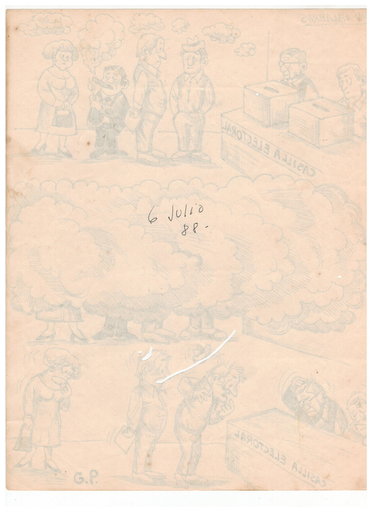 CASILLA ELECTORAL
6 Julio
88.-
CASILLA ELECTORAL